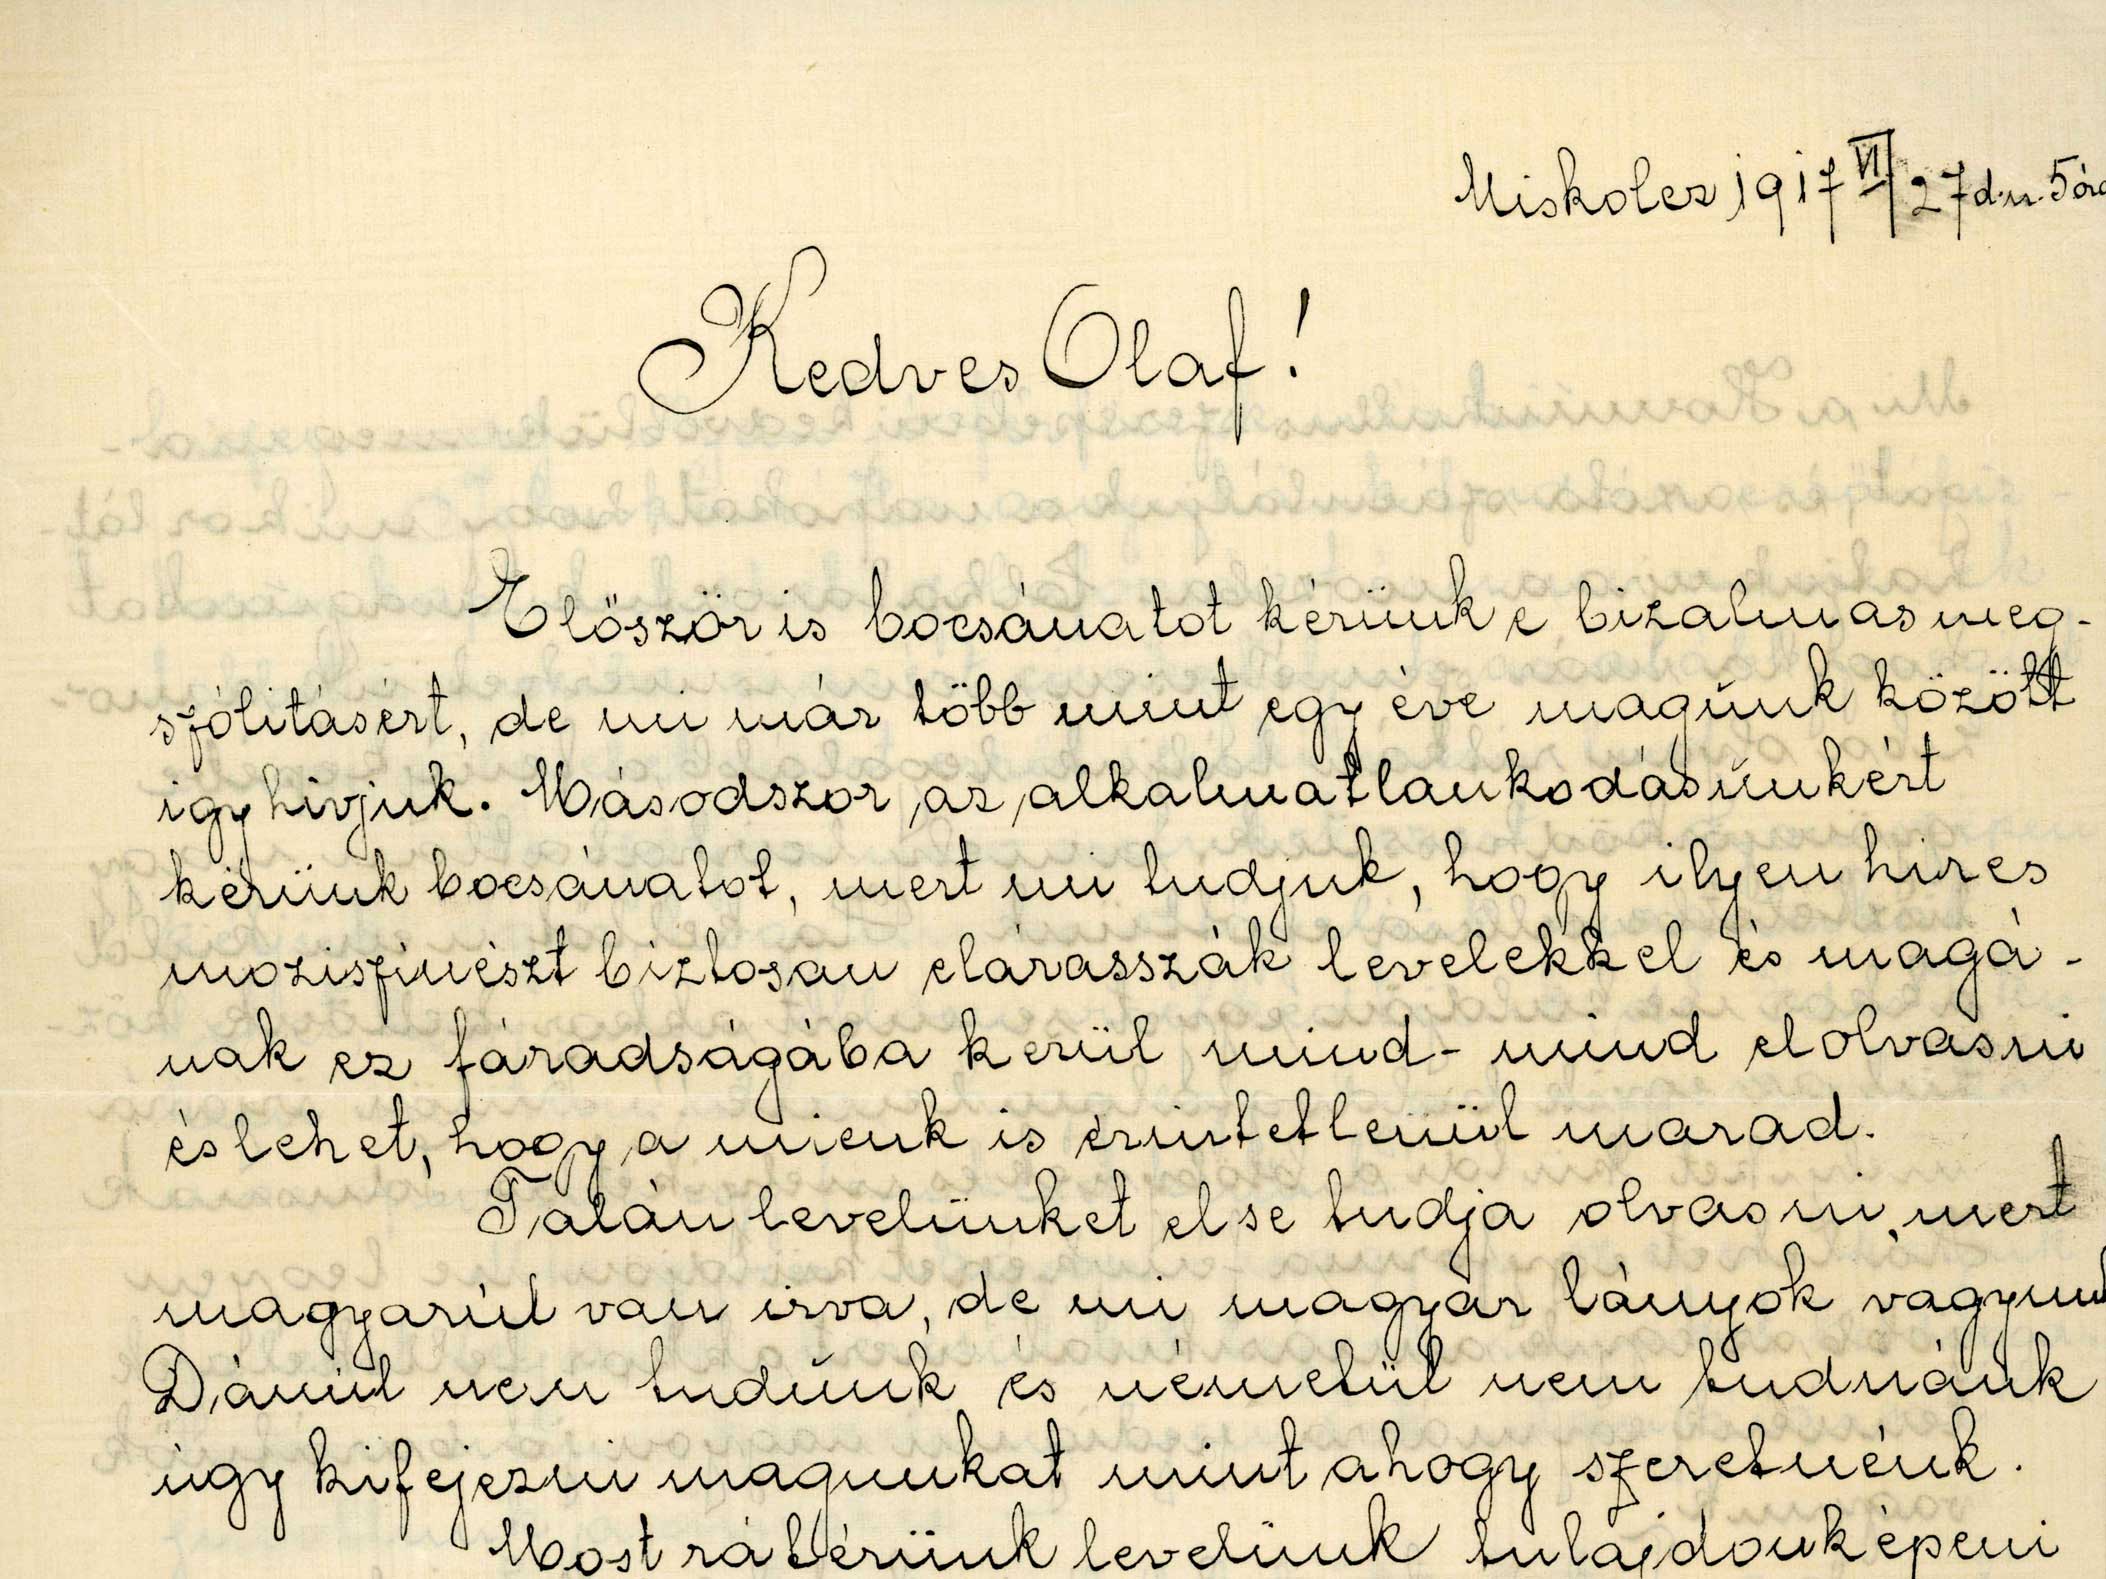 Miskolcz 1917 VI/27 d.u. 5 óra
Kedves Olaf!
Először is bocsánatot kérünk e bizalmas meg-
szólitásért, de mi már több mint egy éve magunk között
igy hivjuk. Másodszor az alkalmatlankodásunkért
kérünk bocsánatot, mert mi tudjuk, hogy ilyen hires
moziszinészt biztosan elárasszák levelekkel és magá-
nak ez fáradságába kerül mind-mind elolvasni
és lehet, hogy a mienk is érintetlenül marad.
Talán levelünket el se tudja olvasni, mert
magyarúl van irva, de mi magyar lányok vagyunk
Dánúl nem tudunk és németül nem tudnánk
úgy kifejezni magunkat mint ahogy szeretnénk.
Most rátérünk levelünk tulajdonképeni